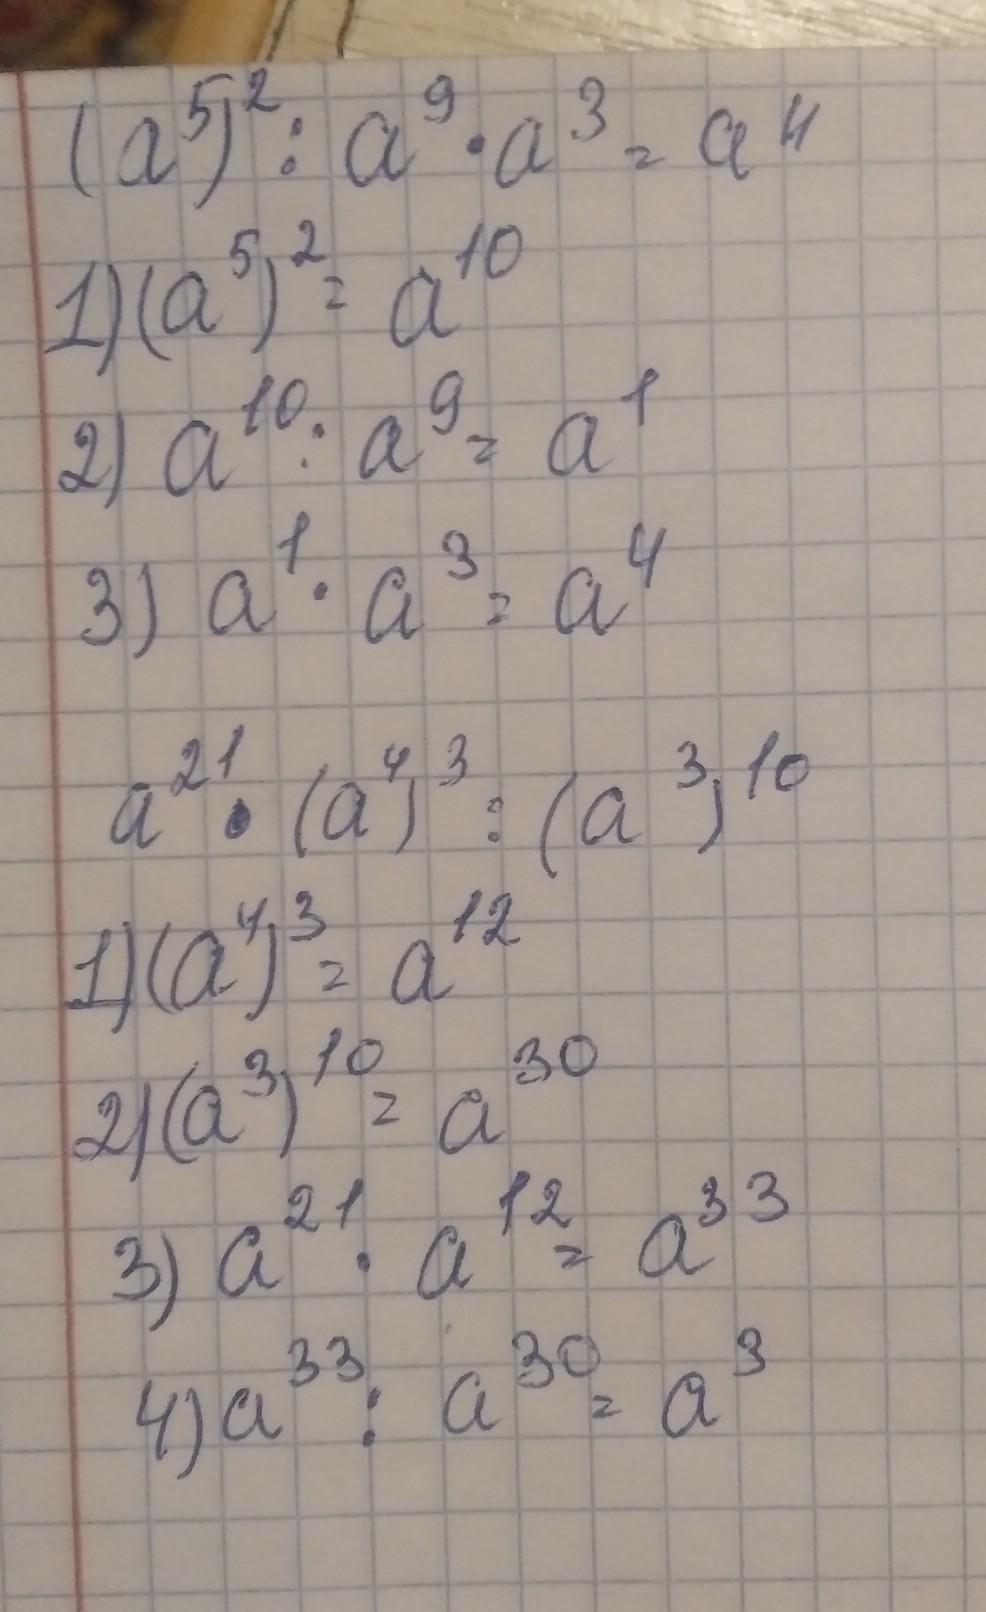 (a⁵)² : a⁹ · a³ = a⁴
1) (a⁵)² = a¹⁰
2) a¹⁰ : a⁹ = a¹
3) a¹ · a³ = a⁴
a²¹ · (a⁴)³ : (a³)¹⁰
1) (a⁴)³ = a¹²
2) (a³)¹⁰ = a³⁰
3) a²¹ · a¹² = a³³
4) a³³ : a³⁰ = a³